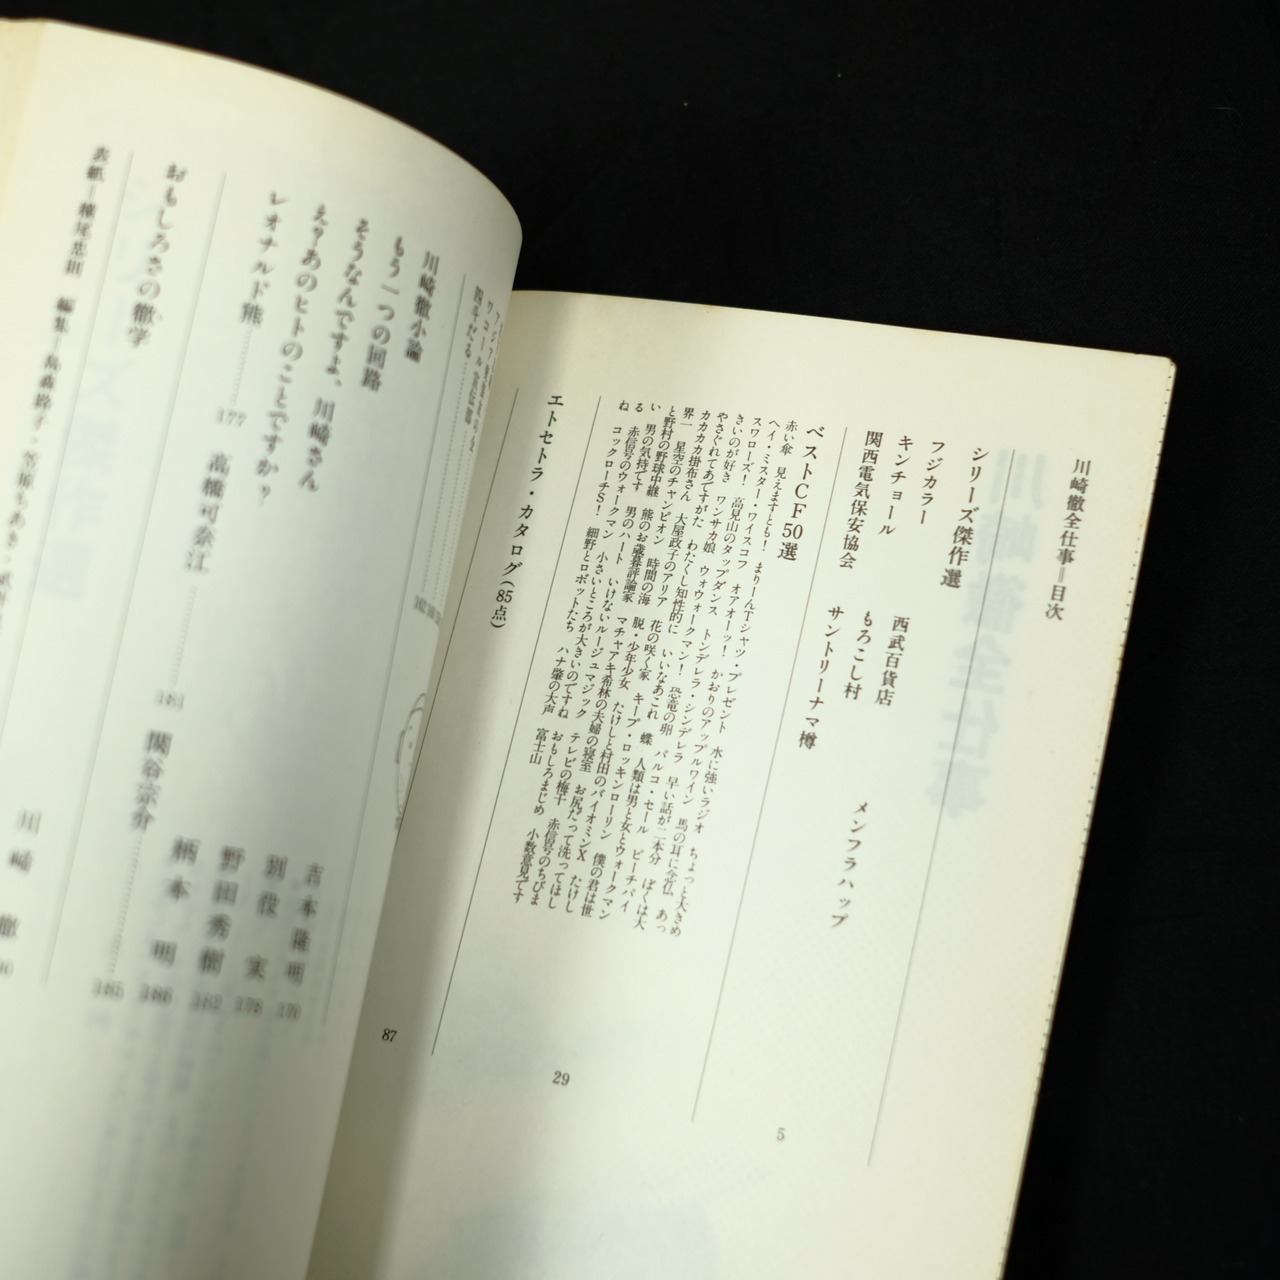 川崎徹全仕事=目次
シリーズ傑作選
フジカラー
キンチョール 西武百貨店
関西電気保安協会 もろこし村 メンフラハップ
サントリーナマ樽
5
ベストCF50選
赤い傘 見えますとも! まりーんTシャツ・プレゼント 水に強いラジオ ちょっと大きめ
ヘイ・ミスター・ワイスコフ オアオーッ! かおりのアップルワイン 馬の耳に念仏 あっ
スワローズ! 高見山のタップダンス トンデレラ・シンデレラ 早い話が二本分 ぼくは大
きいのが好き ワンサカ娘 ウォウォークマン! 恐竜の卵 パルコ・セール ピーチパイ
やさぐれてあですがた わたくし知性的に いいなあこれ 蝶 人類は男と女とウォークマン
カカカカ掛布さん 大屋政子のアリア 花の咲く家 キープ・ロッキンローリン 僕の君は世
界一 星空のチャンピオン 時間の海 脱・少年少女 たけしと村田のバイオミンX たけし
と野村の野球中継 熊のお歳暮評論家 マチャアキ希林の夫婦の寝室 お尻だって洗ってほし
い 男の気持です 男のハート いけないルージュマジック テレビの梅干 赤信号のちびま
る 赤信号のウォークマン 小さいところが大きいのですね おもしろまじめ 小数意見です
ね コックローチS! 細野とロボットたち ハナ肇の大声 富士山
29
エトセトラ・カタログ(85点)
87
川崎徹小論
もう一つの回路 吉本隆明 170
そうなんですよ、川崎さん 別役実 176
え?あのヒトのことですか? 野田秀樹
レオナルド熊 177 高橋可奈江 181 関谷宗介 柄本明
おもしろさの徹学 川崎徹